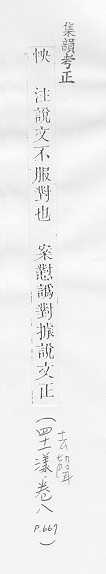 集韻考正
怏 注說文不服對也 案懟譌對據說文正 (四十一漾、卷八 P.667)
去聲